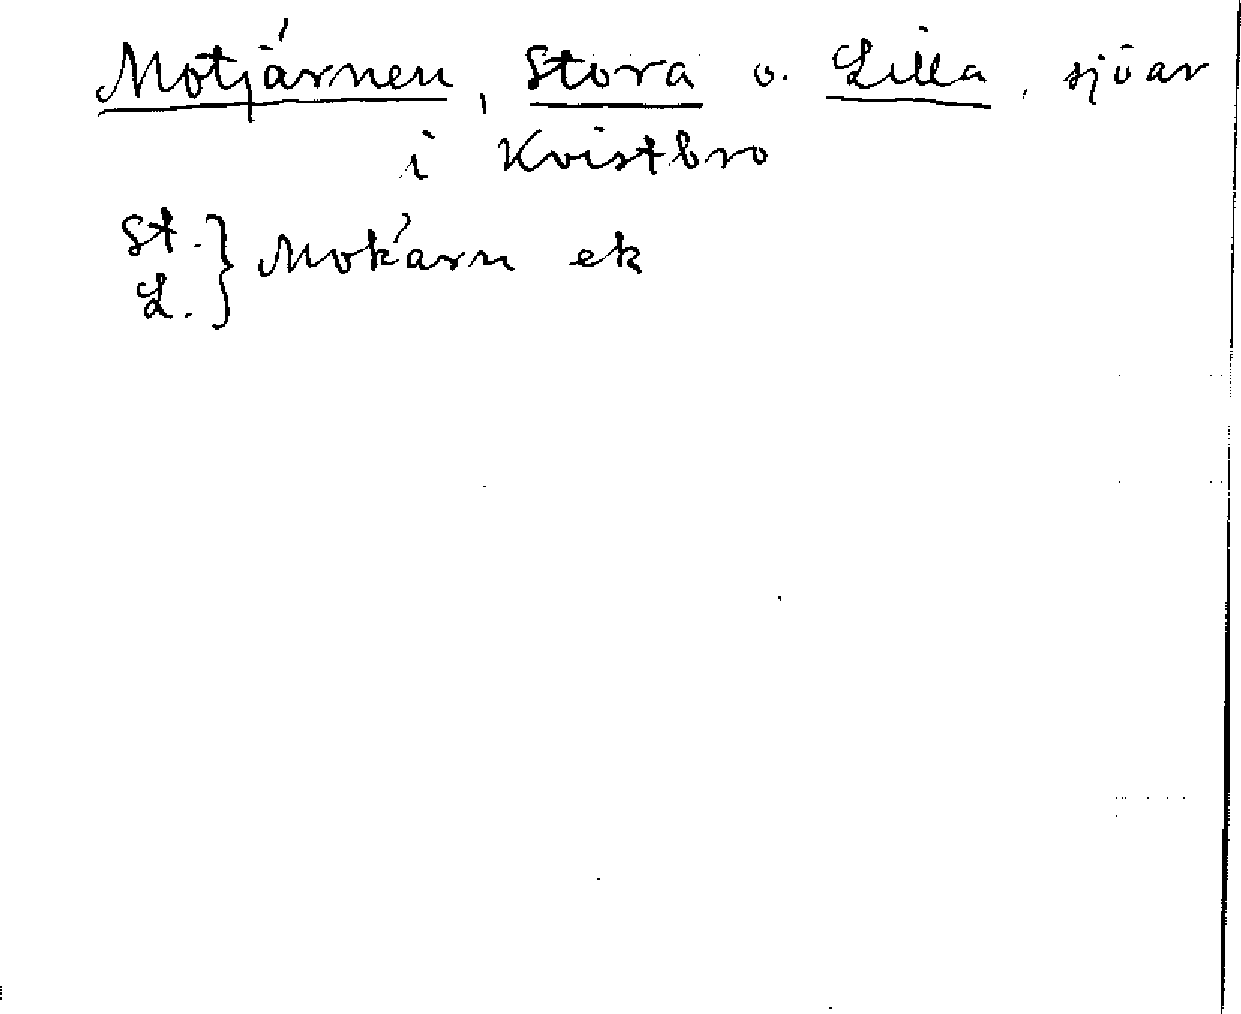 Motjärnen, Stora o. Lilla, sjöar
i Kvistbro
St. } Mokärn ek
L. }